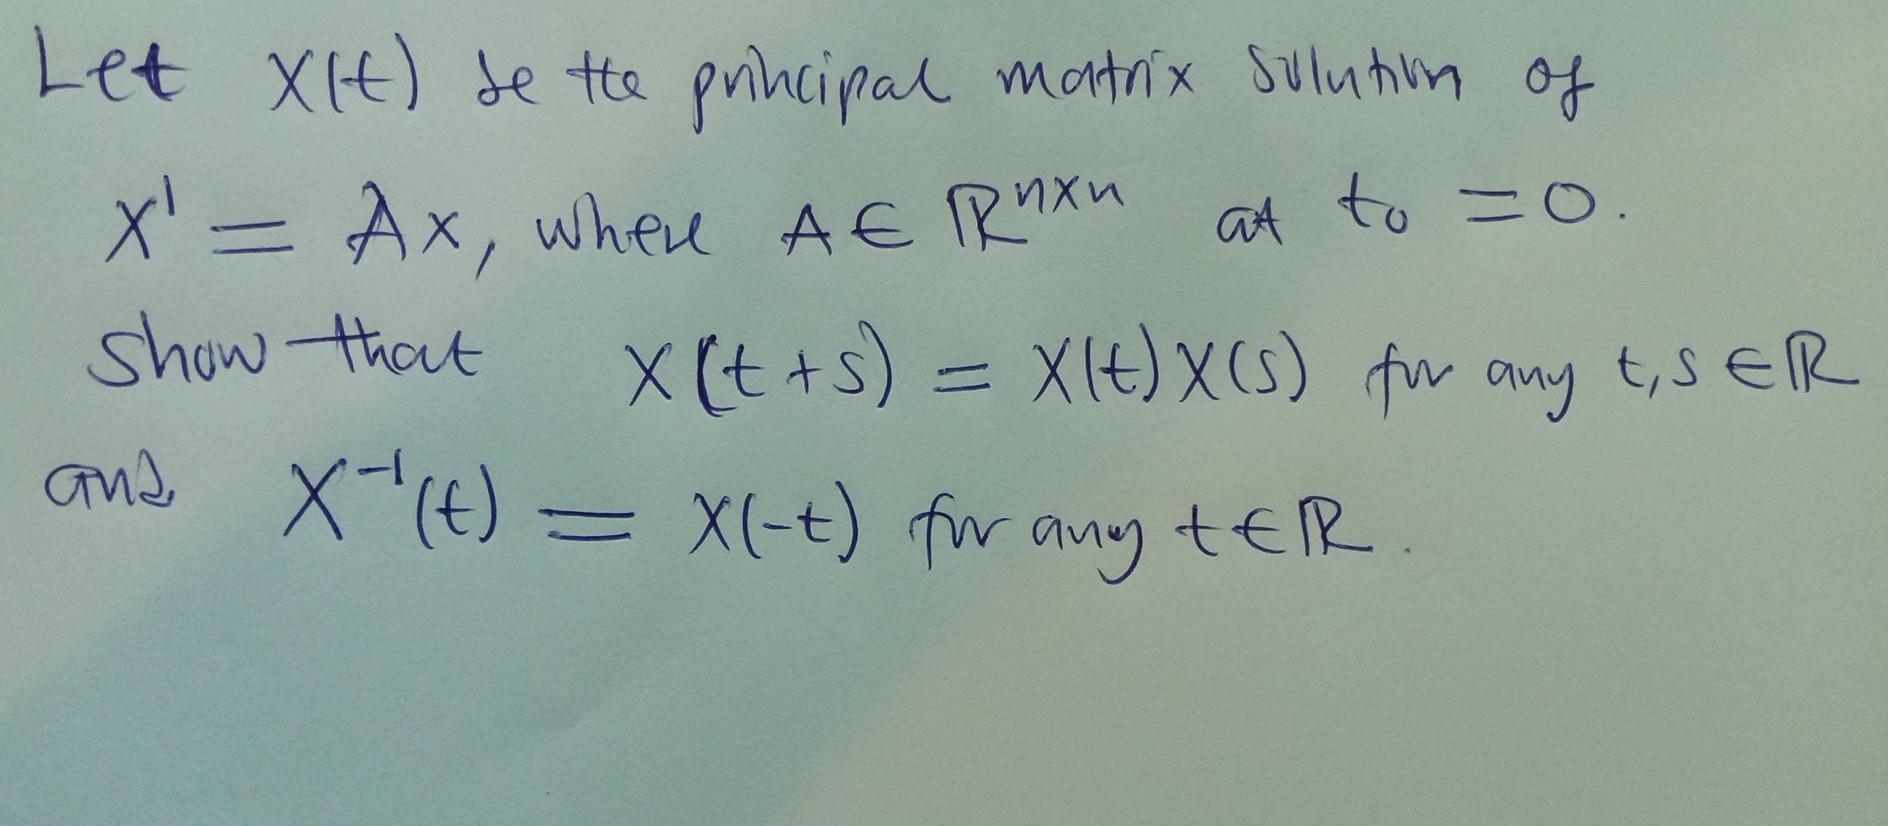 Let X(t) be the principal matrix solution of
x' = Ax, where A ∈ ℝⁿˣⁿ at t₀ = 0.
Show that X(t+s) = X(t)X(s) for any t,s ∈ ℝ
and X⁻¹(t) = X(-t) for any t ∈ ℝ.